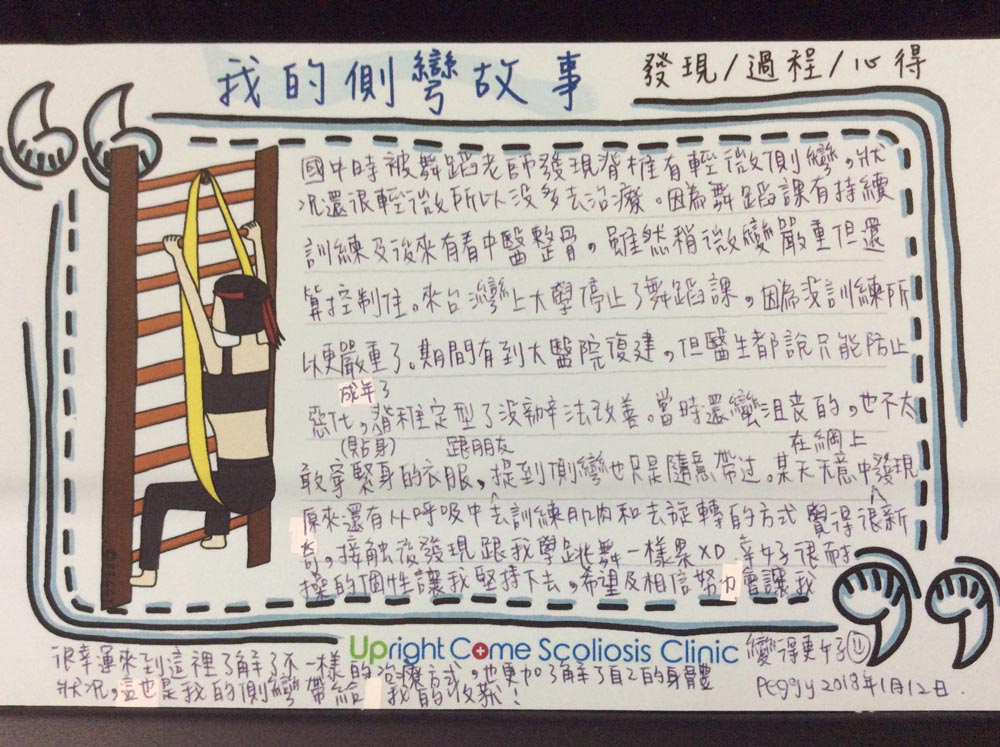 我的側彎故事
發現/過程/心得
國中時被舞蹈老師發現脊椎有輕微側彎,狀
況還很輕微所以沒多去治療。因為舞蹈課有持續
訓練及後來有看中醫整骨,雖然稍微變嚴重但還
算控制住。來台灣上大學停止了舞蹈課,因為沒訓練所
以更嚴重了。期間有到大醫院復建,但醫生都說只能防止
成年了
惡化,脊椎定型了沒辦法改善。當時還蠻沮喪的,也不太
(貼身) 跟朋友 在網上
敢穿緊身的衣服,提到側彎也只是隨意帶过。某天无意中發現
原來還有从呼吸中去訓練肌肉和去旋轉的方式 覺得很新
奇。接触後發現跟我學跳舞一樣累XD 幸好很耐
操的個性讓我堅持下去。希望及相信努力會讓我
變得更好了
Upright Come Scoliosis Clinic
很幸運來到這裡了解了不一樣的治療方式,也更加了解了自己的身體
狀況,這也是我的側彎帶給 我的收穫!
Peggy 2018年1月12日.